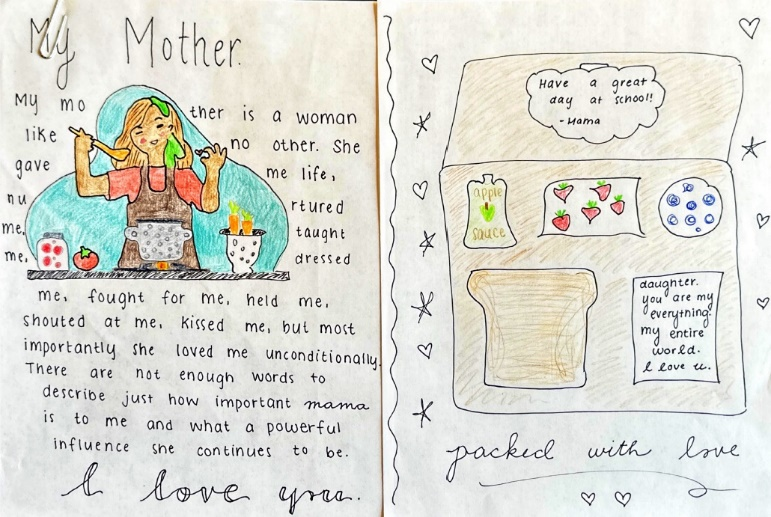 My Mother.
My mother is a woman
like no other. She
gave me life,
nurtured
me, taught
me, dressed
me, fought for me, held me,
shouted at me, kissed me, but most
importantly she loved me unconditionally.
There are not enough words to
describe just how important mama
is to me and what a powerful
influence she continues to be.
I love you.
Have a great
day at school!
-Mama
apple
sauce
daughter.
you are my
everything.
my entire
world.
I love u.
packed with love